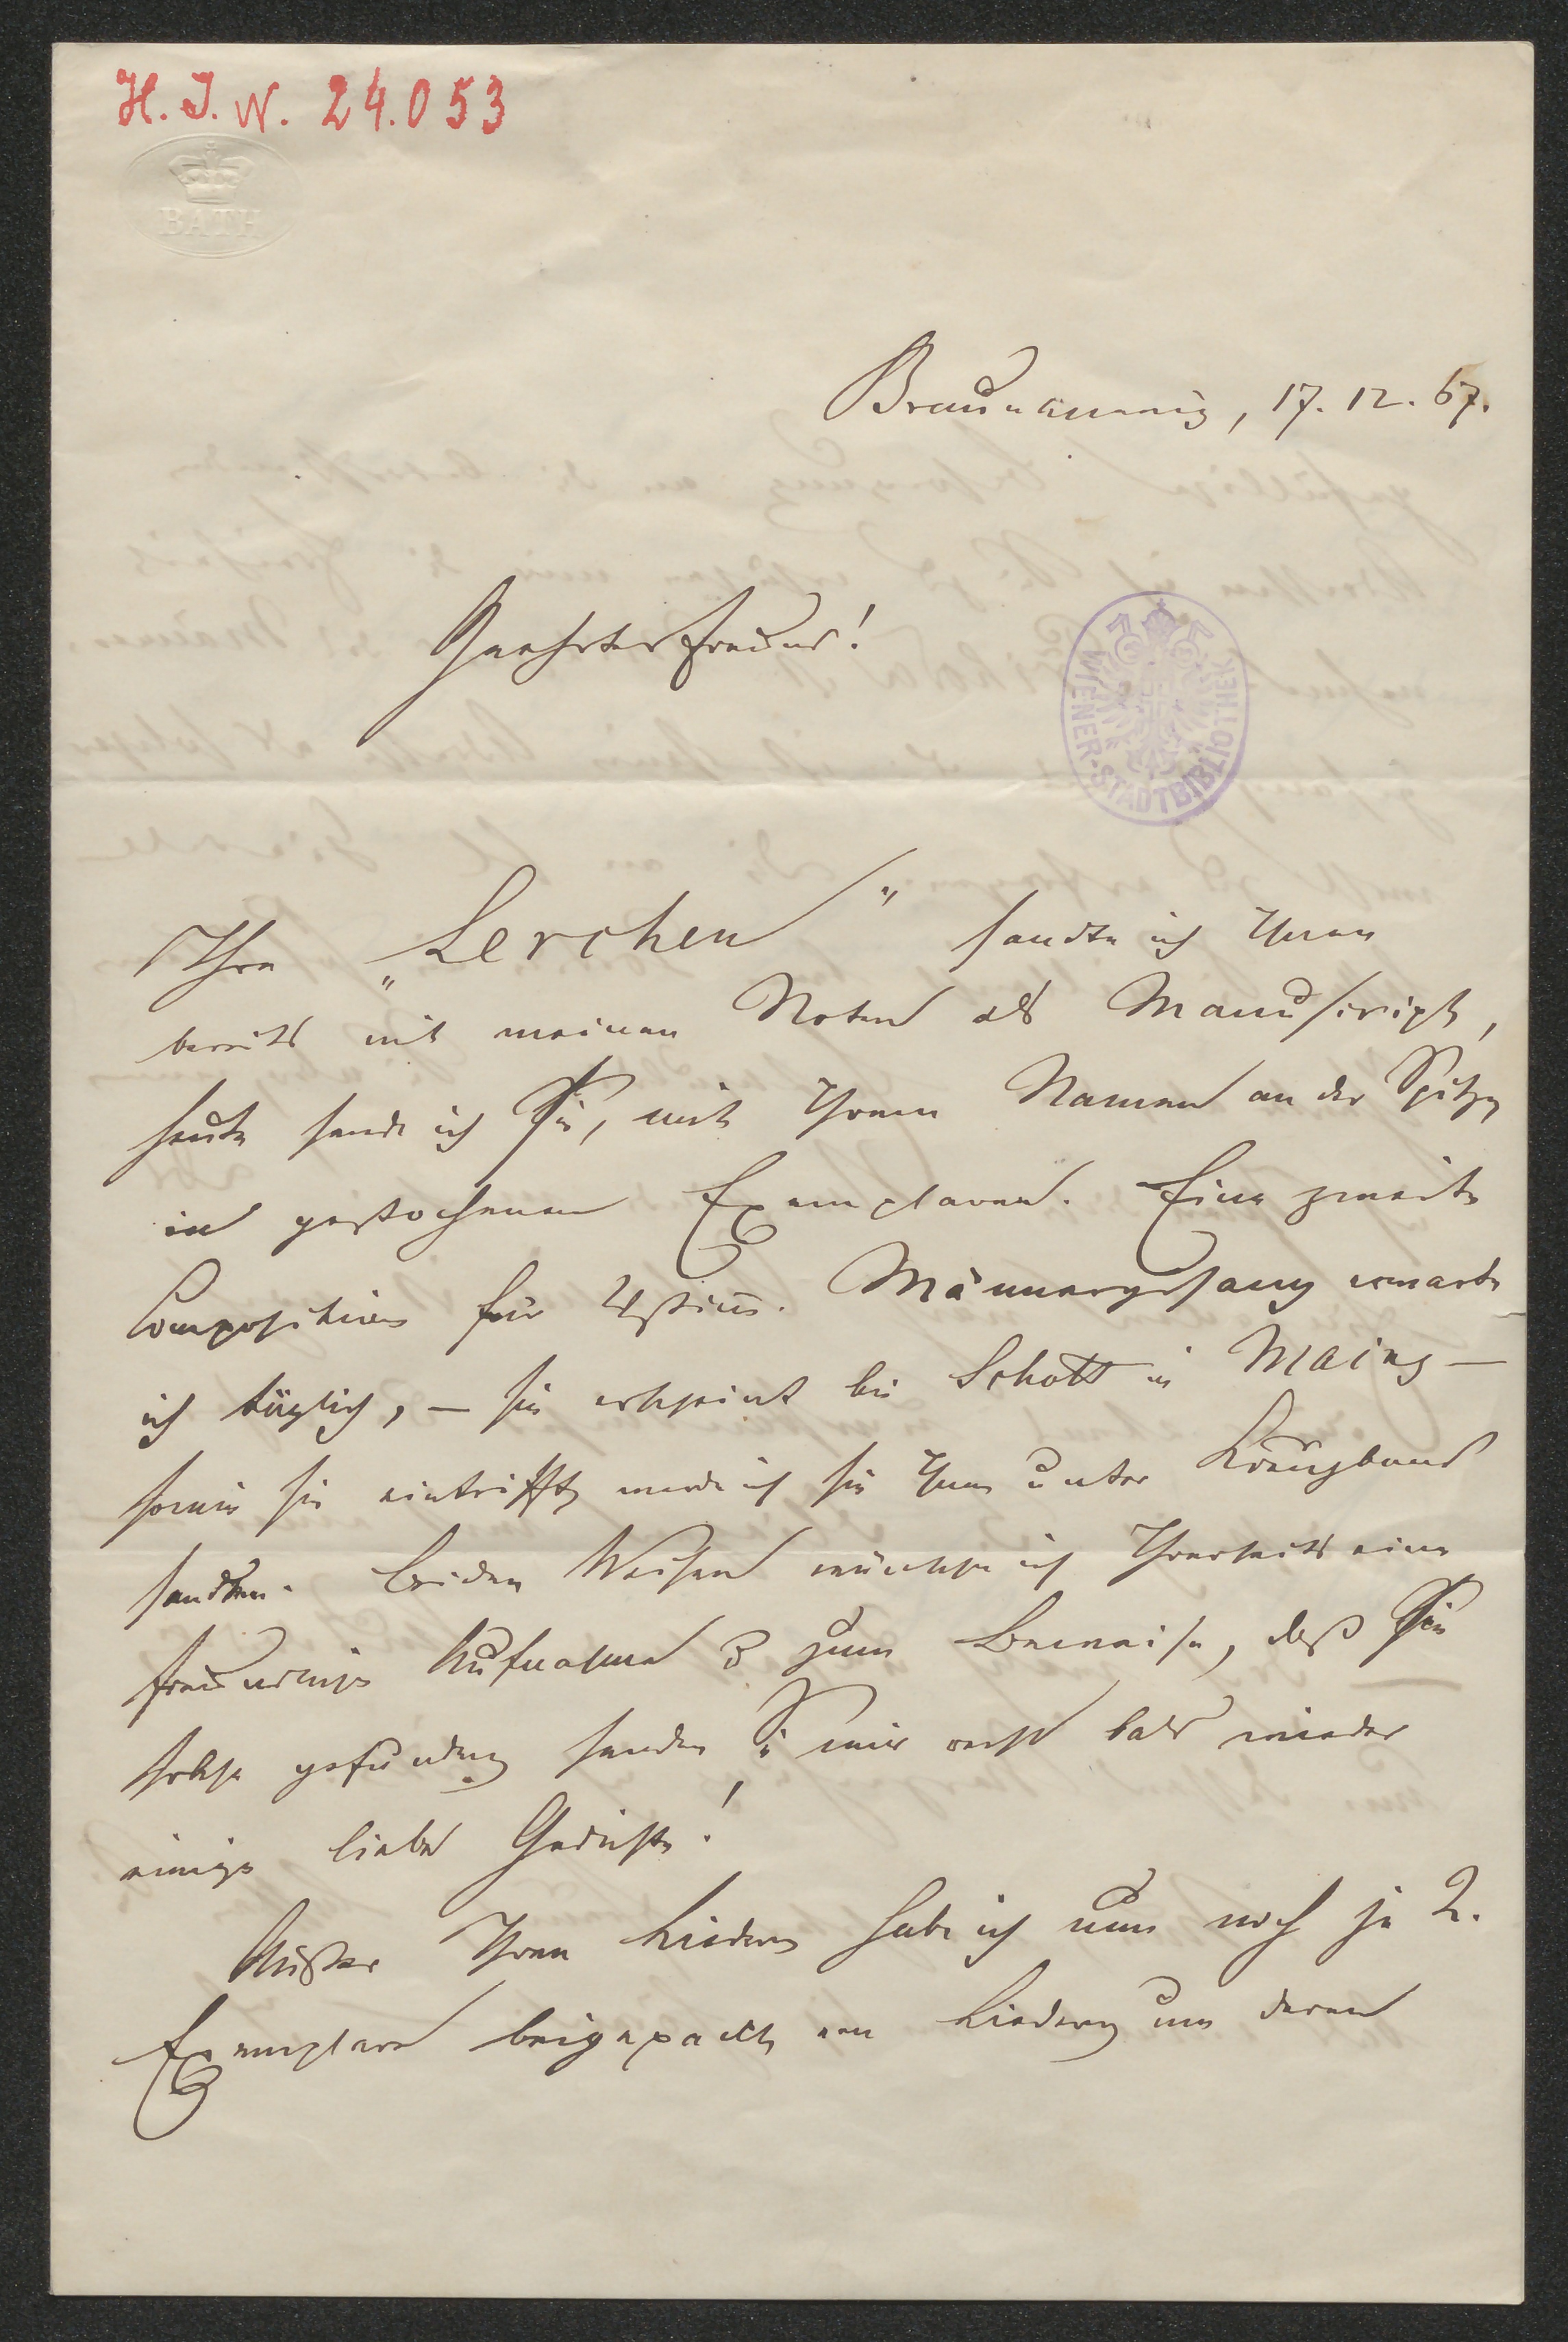 H. I. N. 24.053
BATH
Braunschweig, 17. 12. 67.
Geehrter Freund!
WIENER-STADTBIBLIOTHEK
Ihre „Lerchen" sandte ich Ihnen
bereits mit meinen Noten als Manuscript,
heute sende ich Sie, mit Ihrem Namen an der Spitze
in gestochenen Exemplaren. Eine zweite
Composition für 4stim. Männergesang erwarte
ich täglich, – sie erscheint bei Schott in Mainz –
sowie sie eintrifft werde ich sie Ihnen unter Kreuzband
senden. Beiden Weisen wünsche ich Ihrerseits eine
freundliche Aufnahme & zum Beweise, daß Sie
solche gefunden senden Sie mir recht bald wieder
einige liebe Gedichte!
Außer Ihren Liedern habe ich nun noch je 2.
Exemplare beigepackt von Liedern um deren